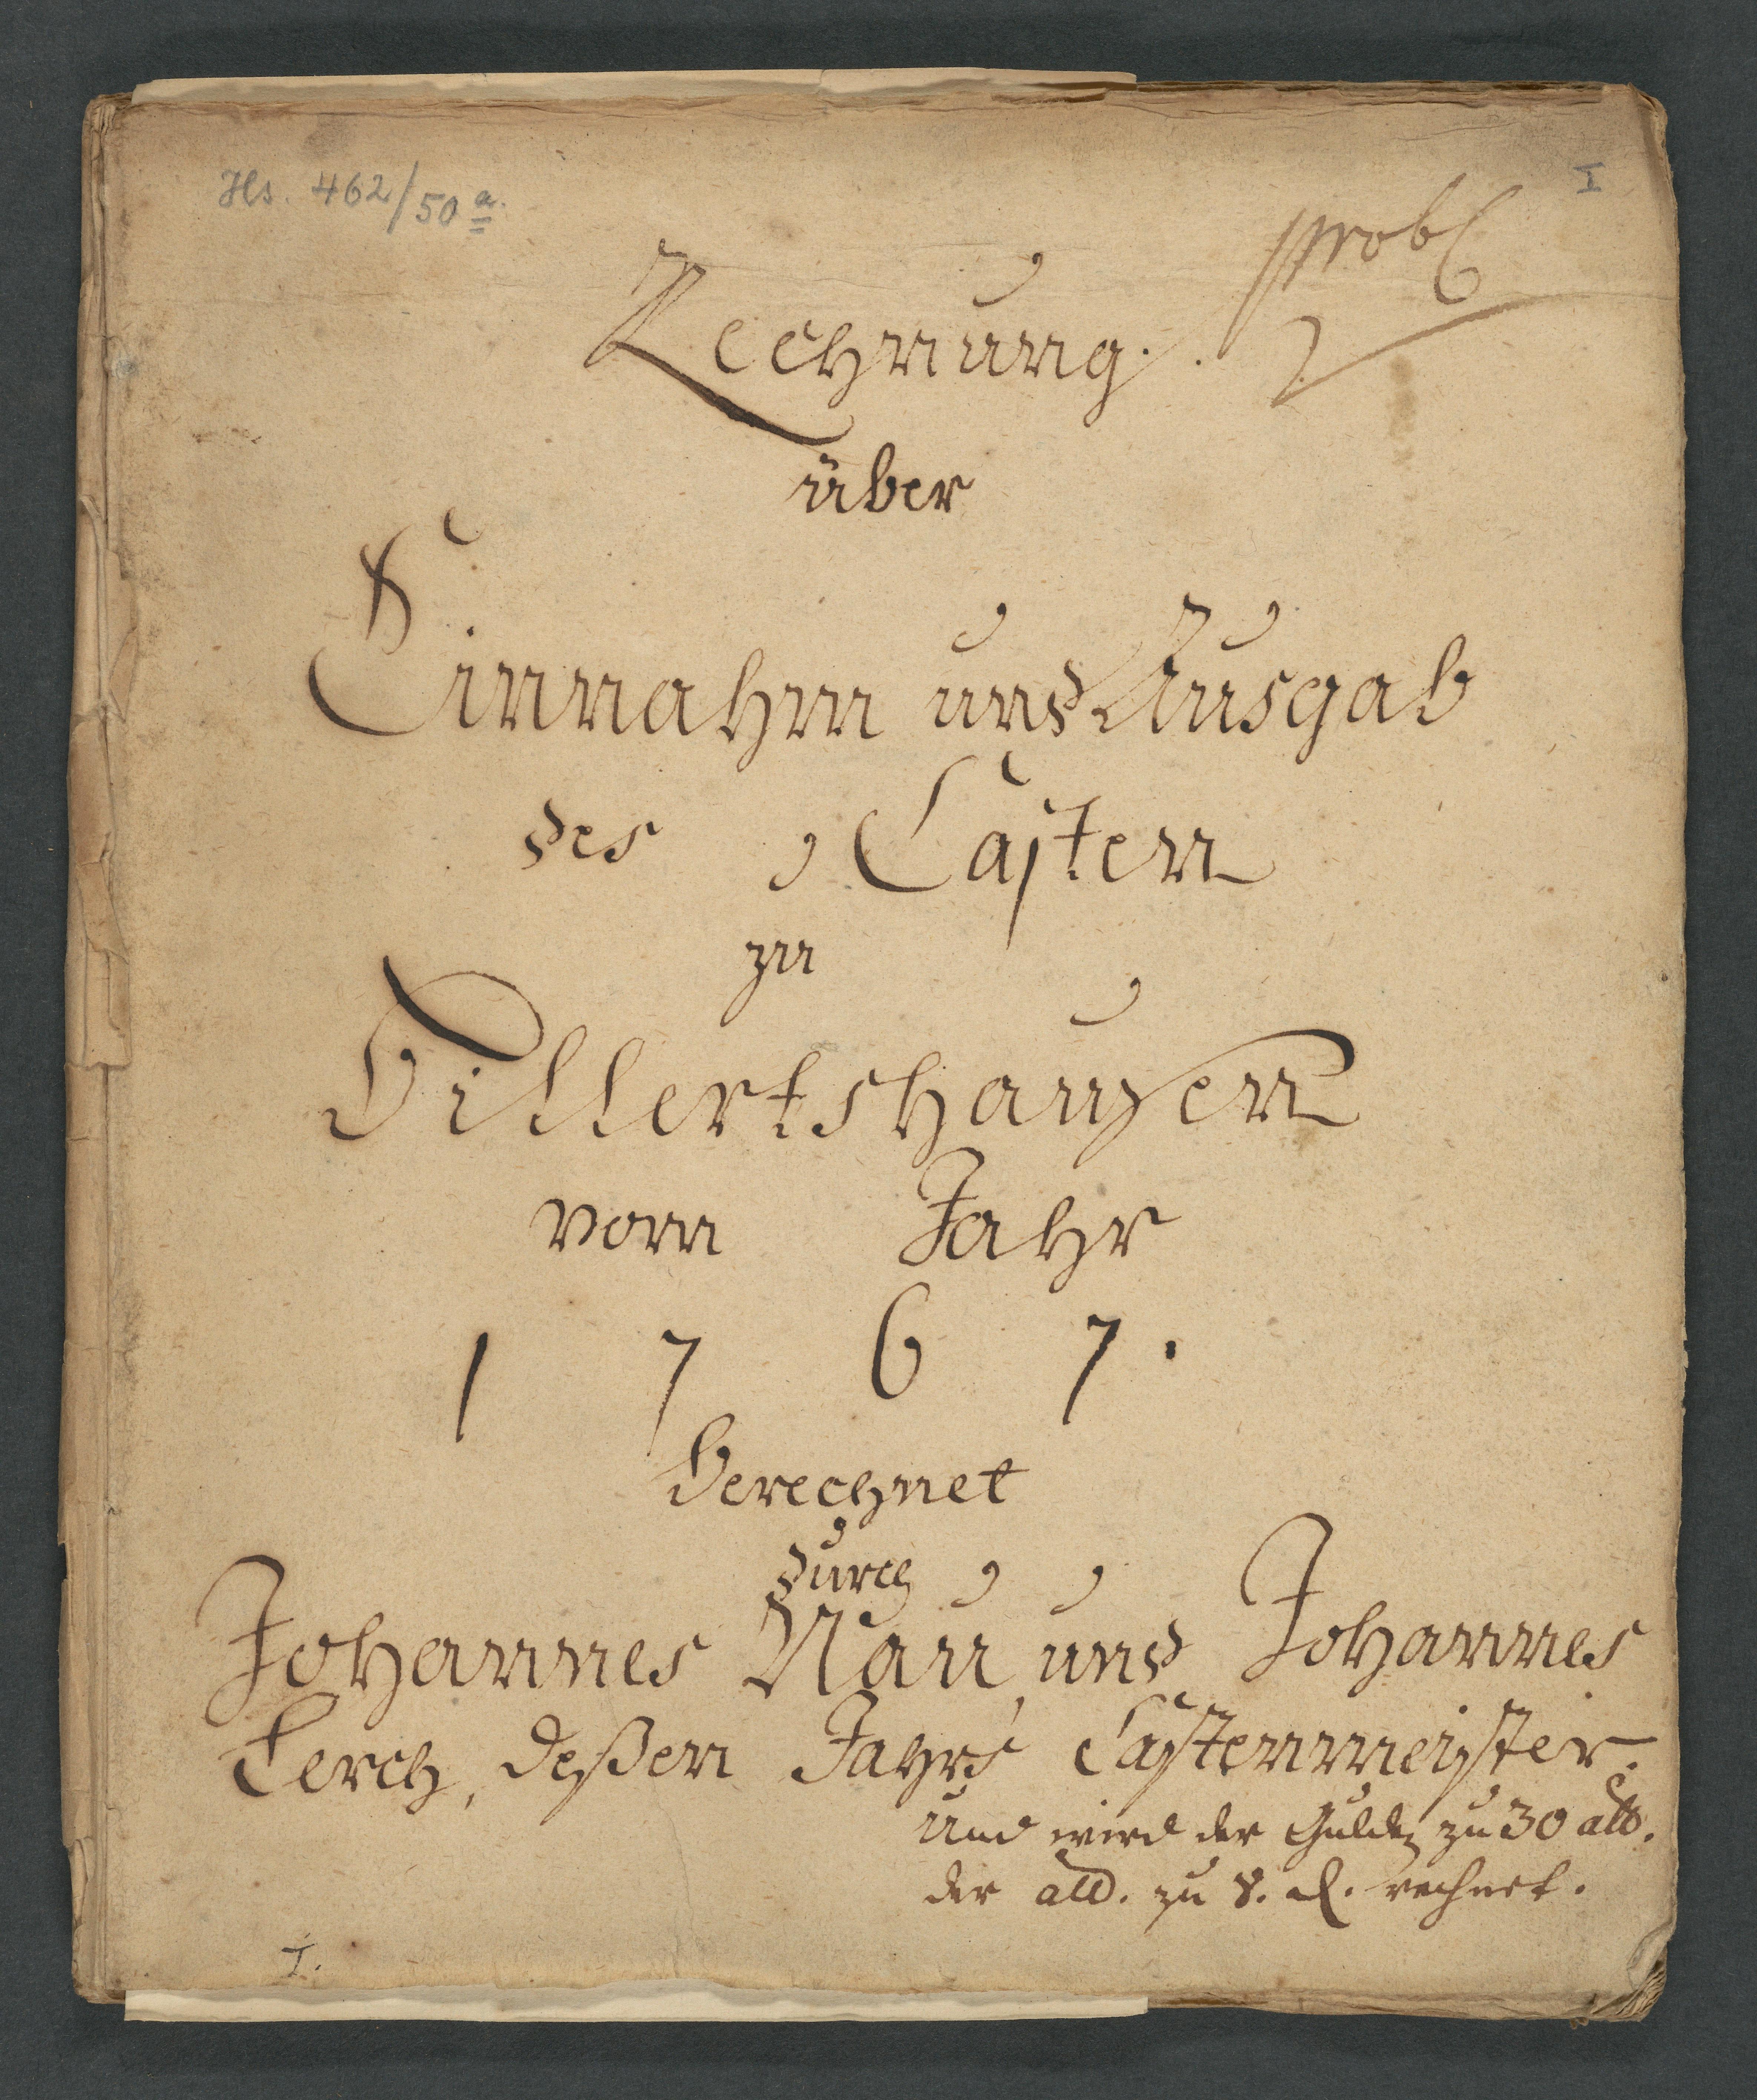 Hs. 462/50 a.
I
prob
Rechnung.
über
Einnahm und Ausgab
des Casten
zu
Billertshausen
vom Jahr
1767.
Berechnet
durch
Johannes Nau, und Johannes
Lerch, deßen Jahrs Castenmeister.
Und wird der Gulden zu 30 alb.
der alb. zu 8. d. rechnet.
I.